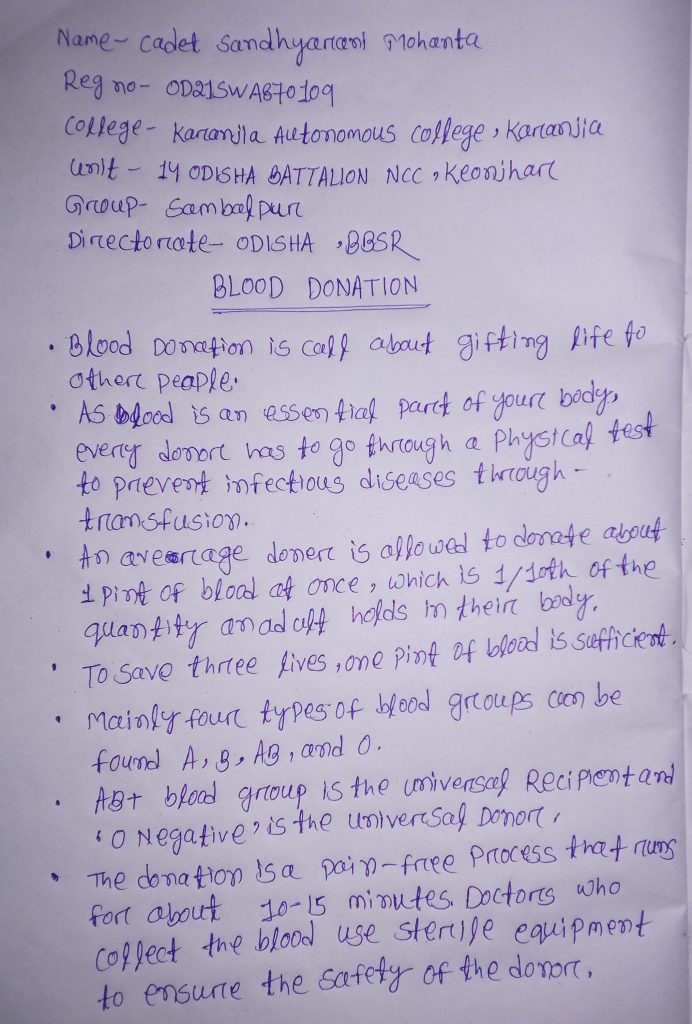 Name- Cadet Sandhyarani Mohanta
Reg no- OD21SWA870109
College- Karanjia Autonomous college, Karanjia
Unit - 14 ODISHA BATTALION NCC, Keonjhar
Group- Sambalpur
Directorate- ODISHA, BBSR
BLOOD DONATION
• Blood Donation is call about gifting life to
other people.
• AS blood is an essential part of your body,
every donor has to go through a physical test
to prevent infectious diseases through -
transfusion.
• An average doner is allowed to donate about
1 pint of blood at once, which is 1/10th of the
quantity an adult holds in their body.
• To save three lives, one pint of blood is sufficient.
• Mainly four types of blood groups can be
found A, B, AB, and O.
• AB+ blood group is the universal Recipient and
'O Negative' is the universal Donor.
• The donation is a pain-free process that runs
for about 10-15 minutes. Doctors who
collect the blood use sterile equipment
to ensure the safety of the donor.